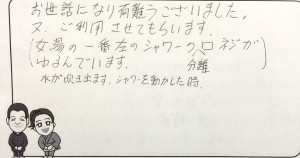 お世話になり有難うございました。
又、ご利用させてもらいます。
(女湯の一番左のシャワーの口ネジが
ゆるんでいます。 分離
水が吹き出ます、シャワーを動かした時、